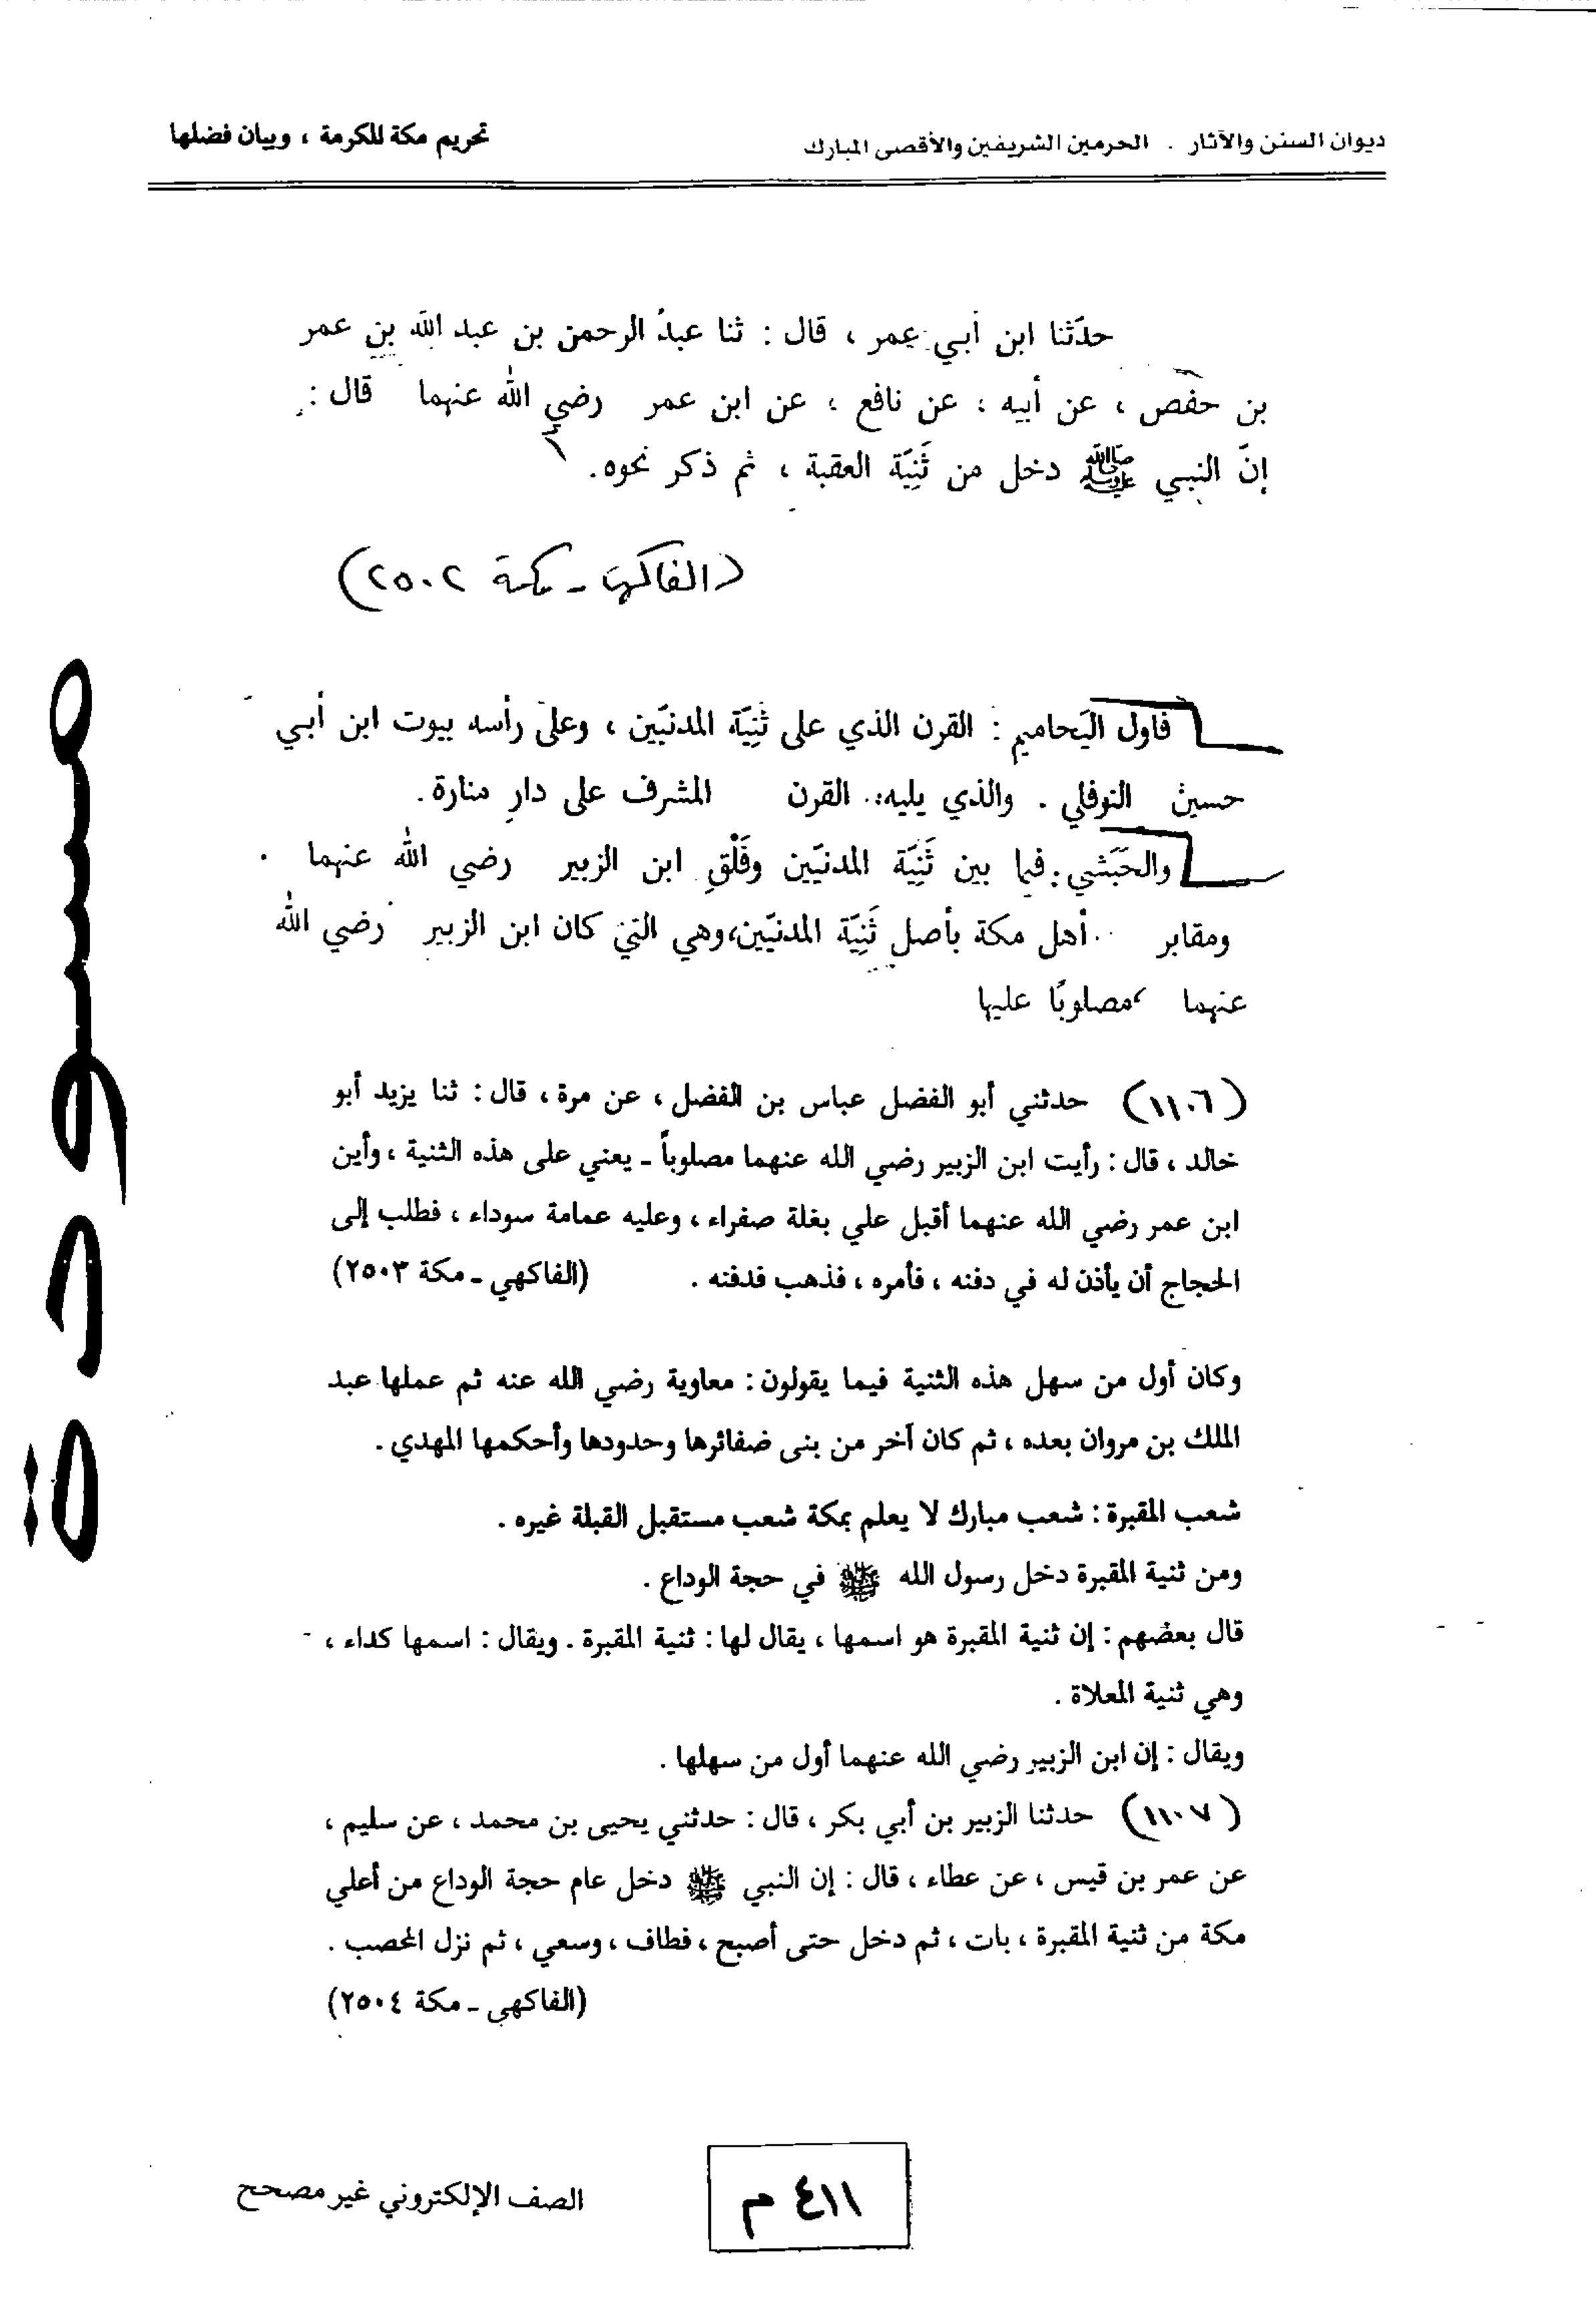 ديوان السنن والآثار . الحرمين الشريفين والأقصى المبارك
تحريم مكة المكرمة ، وبيان فضلها
حدّثنا ابن أبي عمر ، قال : ثنا عبدُ الرحمن بن عبد الله بن عمر
بن حفص ، عن أبيه ، عن نافع ، عن ابن عمر رضي الله عنهما قال :
إنّ النبي ﷺ دخل من ثَنِيّة العقبة ، ثم ذكر نحوه.
(الفاكهي - مكة ٢٥٠٢)
فاول اليَحاميم : القرن الذي على ثَنِيّة المدنيّين ، وعلى رأسه بيوت ابن أبي
حسين النوفلي . والذي يليه: القرن المشرف على دارِ منارة.
والحَبَشي: فيما بين ثَنِيّة المدنيّين وفَلْقِ ابن الزبير رضي الله عنهما .
ومقابر أهل مكة بأصل ثَنِيّة المدنيّين،وهي التي كان ابن الزبير رضي الله
عنهما مصلوبًا عليها
(١١٠٦) حدثني أبو الفضل عباس بن الفضل ، عن مرة ، قال : ثنا يزيد أبو
خالد ، قال : رأيت ابن الزبير رضي الله عنهما مصلوباً ـ يعني على هذه الثنية ، وأين
ابن عمر رضي الله عنهما أقبل علي بغلة صفراء ، وعليه عمامة سوداء ، فطلب إلى
الحجاج أن يأذن له في دفنه ، فأمره ، فذهب فدفنه . (الفاكهي ـ مكة ٢٥٠٣)
وكان أول من سهل هذه الثنية فيما يقولون : معاوية رضي الله عنه ثم عملها عبد
الملك بن مروان بعده ، ثم كان آخر من بنى ضفائرها وحدودها وأحكمها المهدي .
شعب المقبرة : شعب مبارك لا يعلم بمكة شعب مستقبل القبلة غيره .
ومن ثنية المقبرة دخل رسول الله ﷺ في حجة الوداع .
قال بعضهم : إن ثنية المقبرة هو اسمها ، يقال لها : ثنية المقبرة . ويقال : اسمها كداء ،
وهي ثنية المعلاة .
ويقال : إن ابن الزبير رضي الله عنهما أول من سهلها .
(١١٠٧) حدثنا الزبير بن أبي بكر ، قال : حدثني يحيى بن محمد ، عن سليم ،
عن عمر بن قيس ، عن عطاء ، قال : إن النبي ﷺ دخل عام حجة الوداع من أعلي
مكة من ثنية المقبرة ، بات ، ثم دخل حتى أصبح ، فطاف ، وسعي ، ثم نزل المحصب .
(الفاكهي ـ مكة ٢٥٠٤)
مسودة
٤١١ م
الصف الإلكتروني غير مصحح